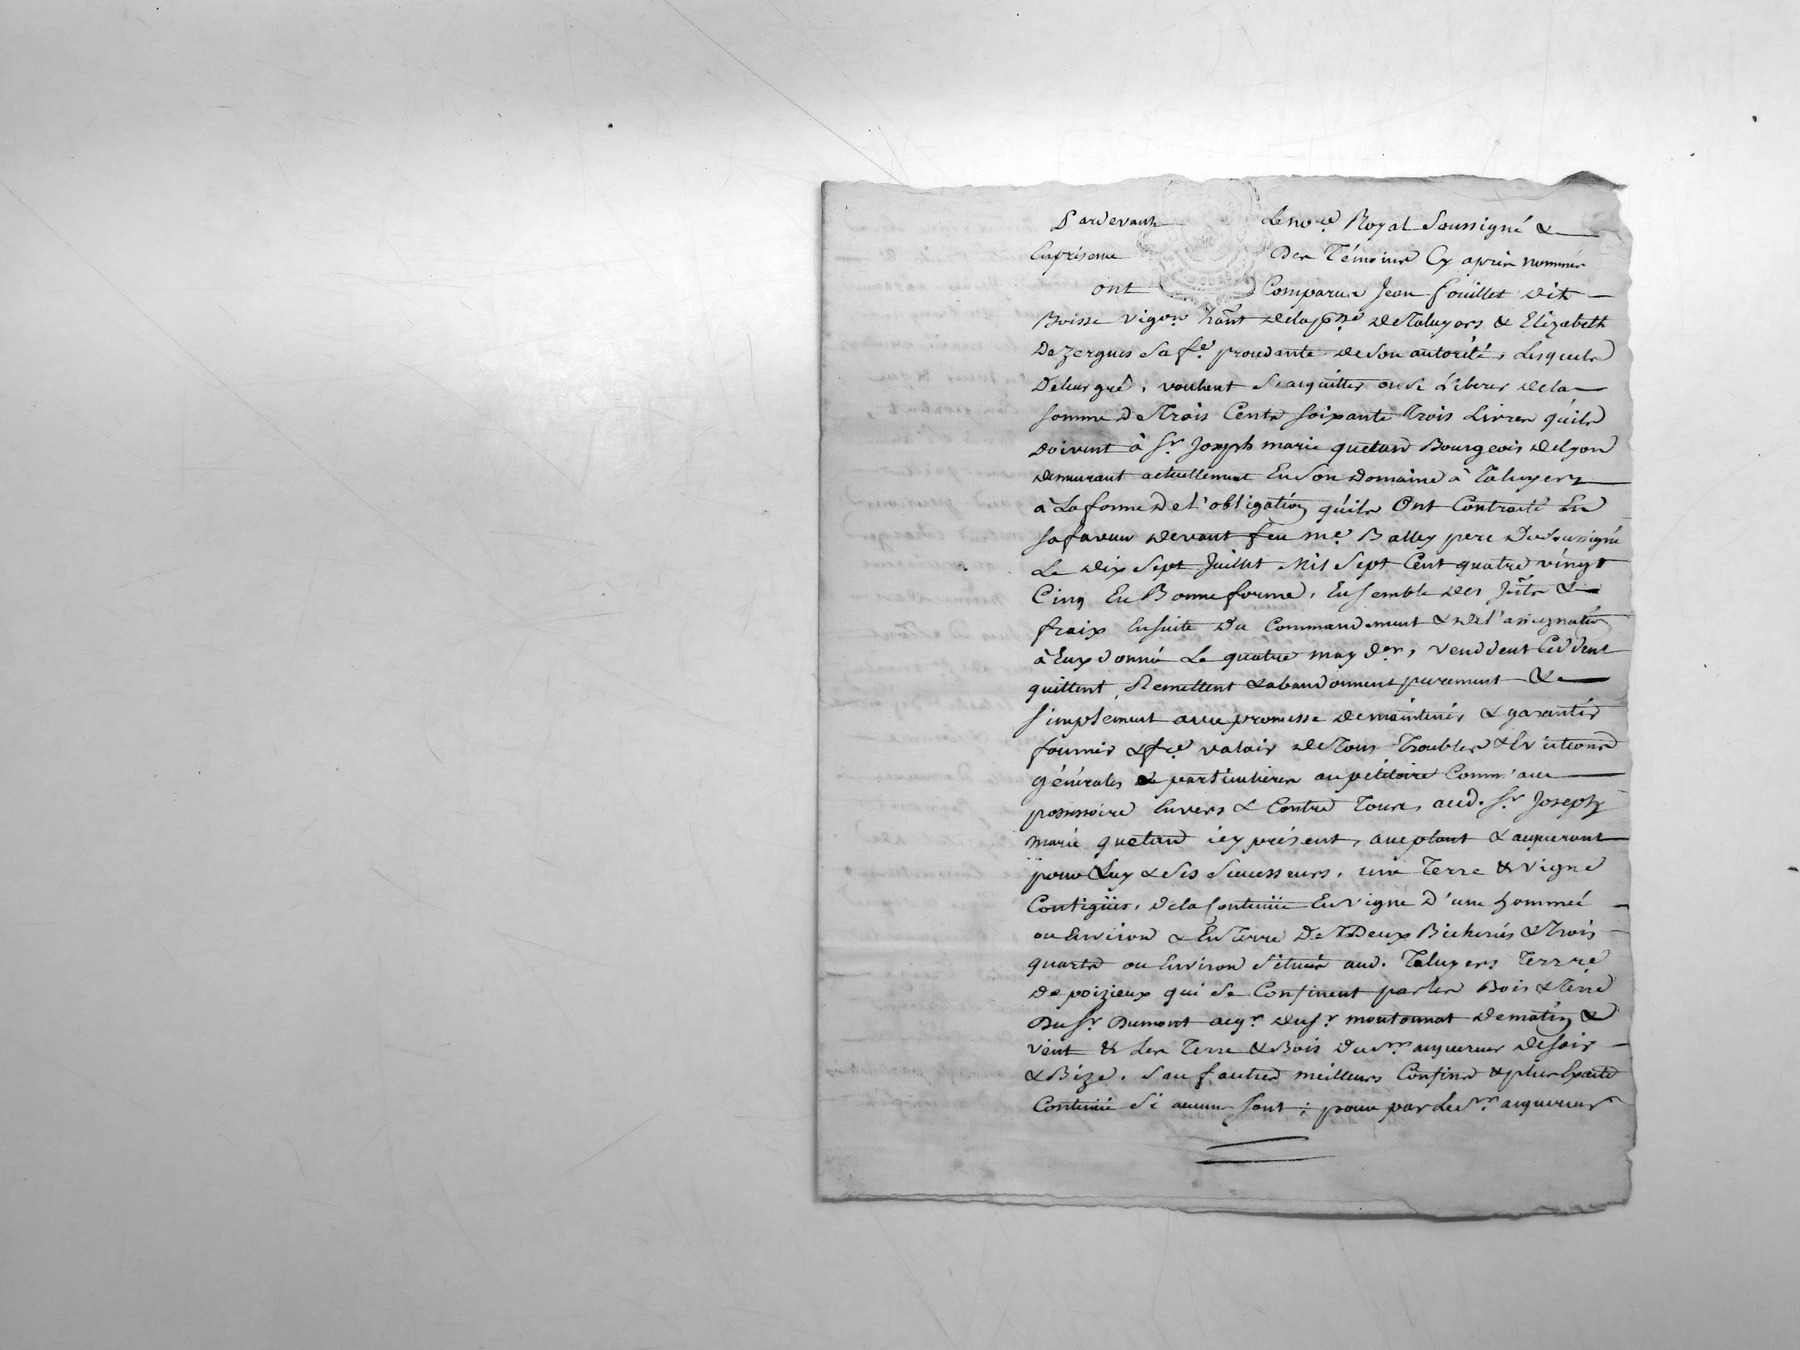 Pardevant Le no.re Royal Soussigné &
En présence Des Témoins Cy après nommés
ont Comparus Jean fouillet dit
Boisse vigon hãnt de la p.sse de Taluyers & Elizabeth
Dezergues Sa f.e procédante de Son autorité, Lesquels
De leur gré, voulant S'acquitter ou se libérer de la
Somme De Trois Cents Soixante Trois Livres qu'ils
Doivent à S.r Joseph marie quetan Bourgeois de Lyon
demeurant actuellement En Son Domaine à Taluyers
à La forme De l'obligation qu'ils Ont Contracté En
Sa faveur devant feu m.e Balley pere Du Soussigné
Le dix Sept Juillet Mil Sept Cent quatre vingt
Cinq En Bonne forme, Ensemble des Jnts &
fraix Ensuite Du Commandement & de l'assignation
à Eux donné Le quatre may d.er, vendent Cèdent
quittent, Remettent & abandonnent purement &
Simplement avec promesse de maintenir & garantir
fournir & f.re valoir de Tous Troubles & Evictions
générales & particulieres au pétitoire Comm' au
possessoire Envers & Contre Tous, aud. S.r Joseph
marie quetan icy présent, acceptant & acquerant
pour Luy & Ses Successeurs, une Terre & vigne
Contigües, de la Contenüe En vigne D'une hommeé
ou Environ & En Terre De Deux Bicherées & Trois
quarts ou Environ Située aud. Taluyers Terre
De poizieux qui Se Confinent par les Bois & Terre
Du S.r Dumont acq.r du S.r montonnat de matin &
vent & Les Terre & Bois Du S.r acquereur de Soir
& Bize. Sauf autres meilleurs Confins & plus Exacte
Contenüe Si aucuns Sont ; pour par Led. S.r acquereur